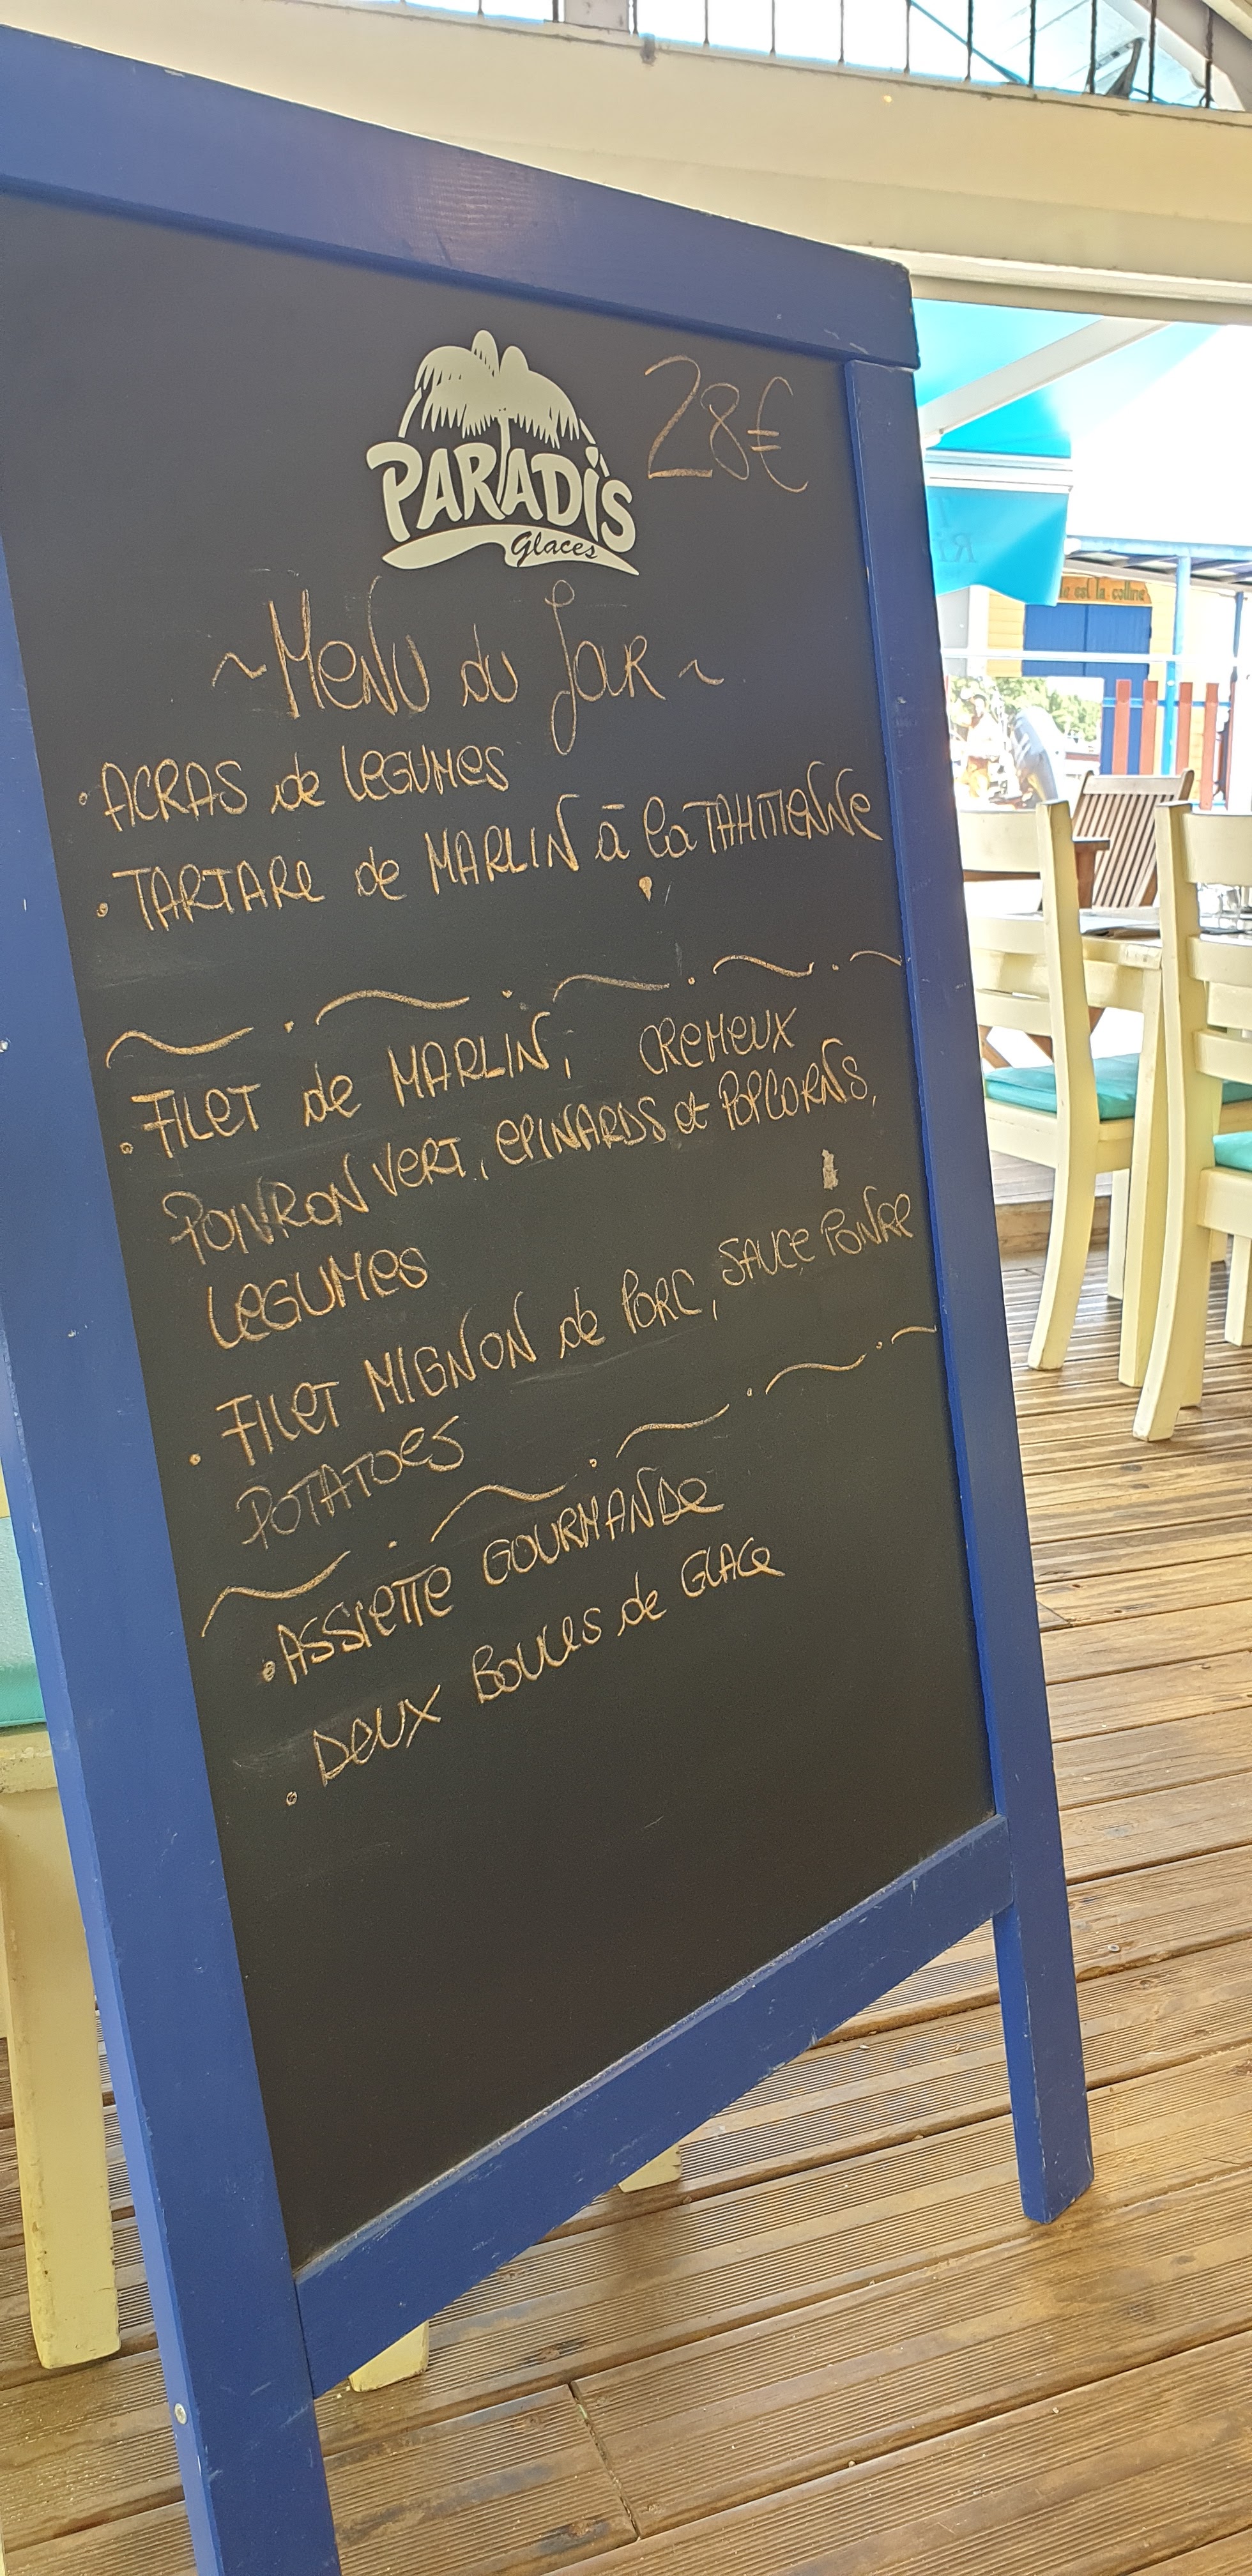 PARADiS
Glaces
28€
~ Menu du Jour ~
• ACRAS de LEGUMES
• TARTARE de MARLIN à la TAHITIENNE
• FILET de MARLIN, CREMEUX
POIVRON VERT, EPINARDS et POPCORNS,
LEGUMES
• FILET MIGNON de PORC, SAUCE POIVRE
POTATOES
• ASSIETTE GOURMANDE
• DEUX BOULES de GLACE
est la colline